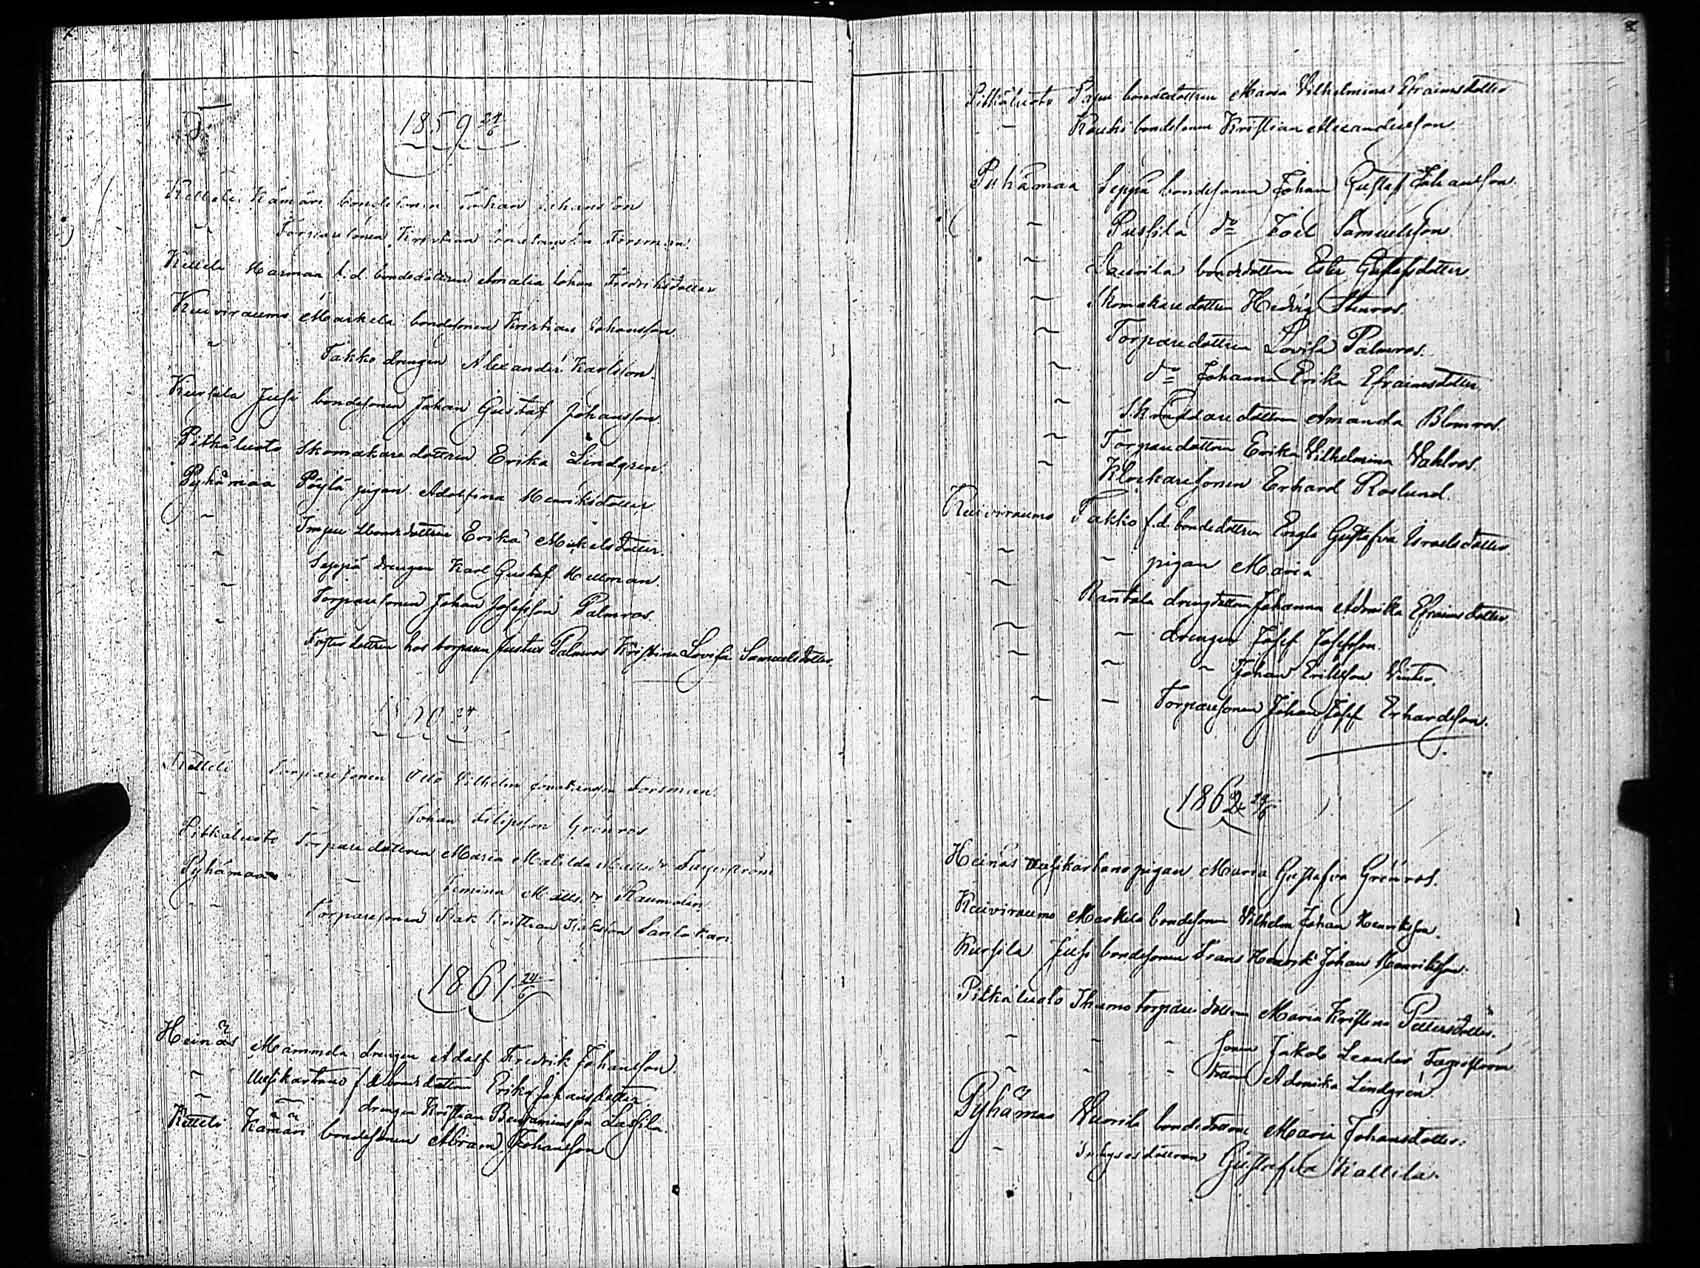 1859 24/6
Ketteli Kämäri bondesonen Johan Johansson
Torparesonen Kristian Forsman
Ketteli Harmaa f.d. bondedottren Amalia Johan Fredriksdotter
Kuiviraumo Markela bondesonen Kristian Johansson.
" Takko drengen Alexander Karlsson.
Kursila Jussi bondesonen Johan Gustaf Johansson
Pitkäluoto Skomakaredottren Erika Lindgren.
Pyhämaa Pöylä pigan Adolfina Henriksdotter
~ Impu bondedottren Erika Mickelsdotter.
~ Seppä drengen Karl Gustaf Hellman
~ Torparesonen Johan Josefsson Palmros.
Fosterdottren hos torparen Justus Palmros Kristina Lovisa Samuelsdotter.
1860 24/6
Ketteli Torparesonen Otto Wilhelm Forsman
" " Johan Filipsson Grönros
Pitkäluoto Torparedottren Maria Matilda Fagerström
Pyhämaa - Femina Raumolin.
" Torparesonen Isak Kristian Isaksson Santakari
1861 24/6
Heinäs Mämmelä drengen Adolf Fredrik Johansson.
~ Uusikartano f.d. bondedottren Erika Johansdotter.
~ drengen Kristian Benjaminsson Lassila.
Ketteli Kämäri bondesonen Abram Johansson
Pitkäluoto Paju bondedottren Maria Vilhelmina Efraimsdotter
~ Kauki bondesonen Kristian Alexandersson.
Pyhämaa Seppä bondesonen Johan Gustaf Johansson.
~ Pussila do Joel Samuelsson
~ Saurila bondedottren Ester Gustafsdotter
~ Skomakaredottren Hedvig Stenros.
~ Torparedottren Lovisa Palmros.
~ do Johanna Erika Efraimsdotter
~ Skräddaredottren Amanda Blomros.
~ Torparedottren Erika Vilhelmina Vahlros.
~ Klockaresonen Erhard Roslund.
Kuiviraumo Takko f.d. bondedottren Engla Gustafva Israelsdotter
~ ~ pigan Maria
~ Rantala drengdottren Johanna Adrika Efraimsdotter.
~ ~ drengen Josef Josefsson.
~ ~ ~ Johan Eriksson Vinter.
~ ~ Torparesonen Johan Josef Erhardsson.
1862 24/6
Heinäs Uusikartano pigan Maria Gustafva Grönros.
Kuiviraumo Markela bondesonen Vilhelm Johan Henriksson.
Kursila Jussi bondesonen Frans Henrik Johan Henriksson.
Pitkäluoto Thamo torparedottren Maria Kristina Pettersdotter.
~ " " sonen Jakob Leander Fagerström
~ " " Adamika Lindgrén.
Pyhämaa Wuorila bondedottren Maria Johansdotter.
~ Inhysesdottren Gustafva Kallila.